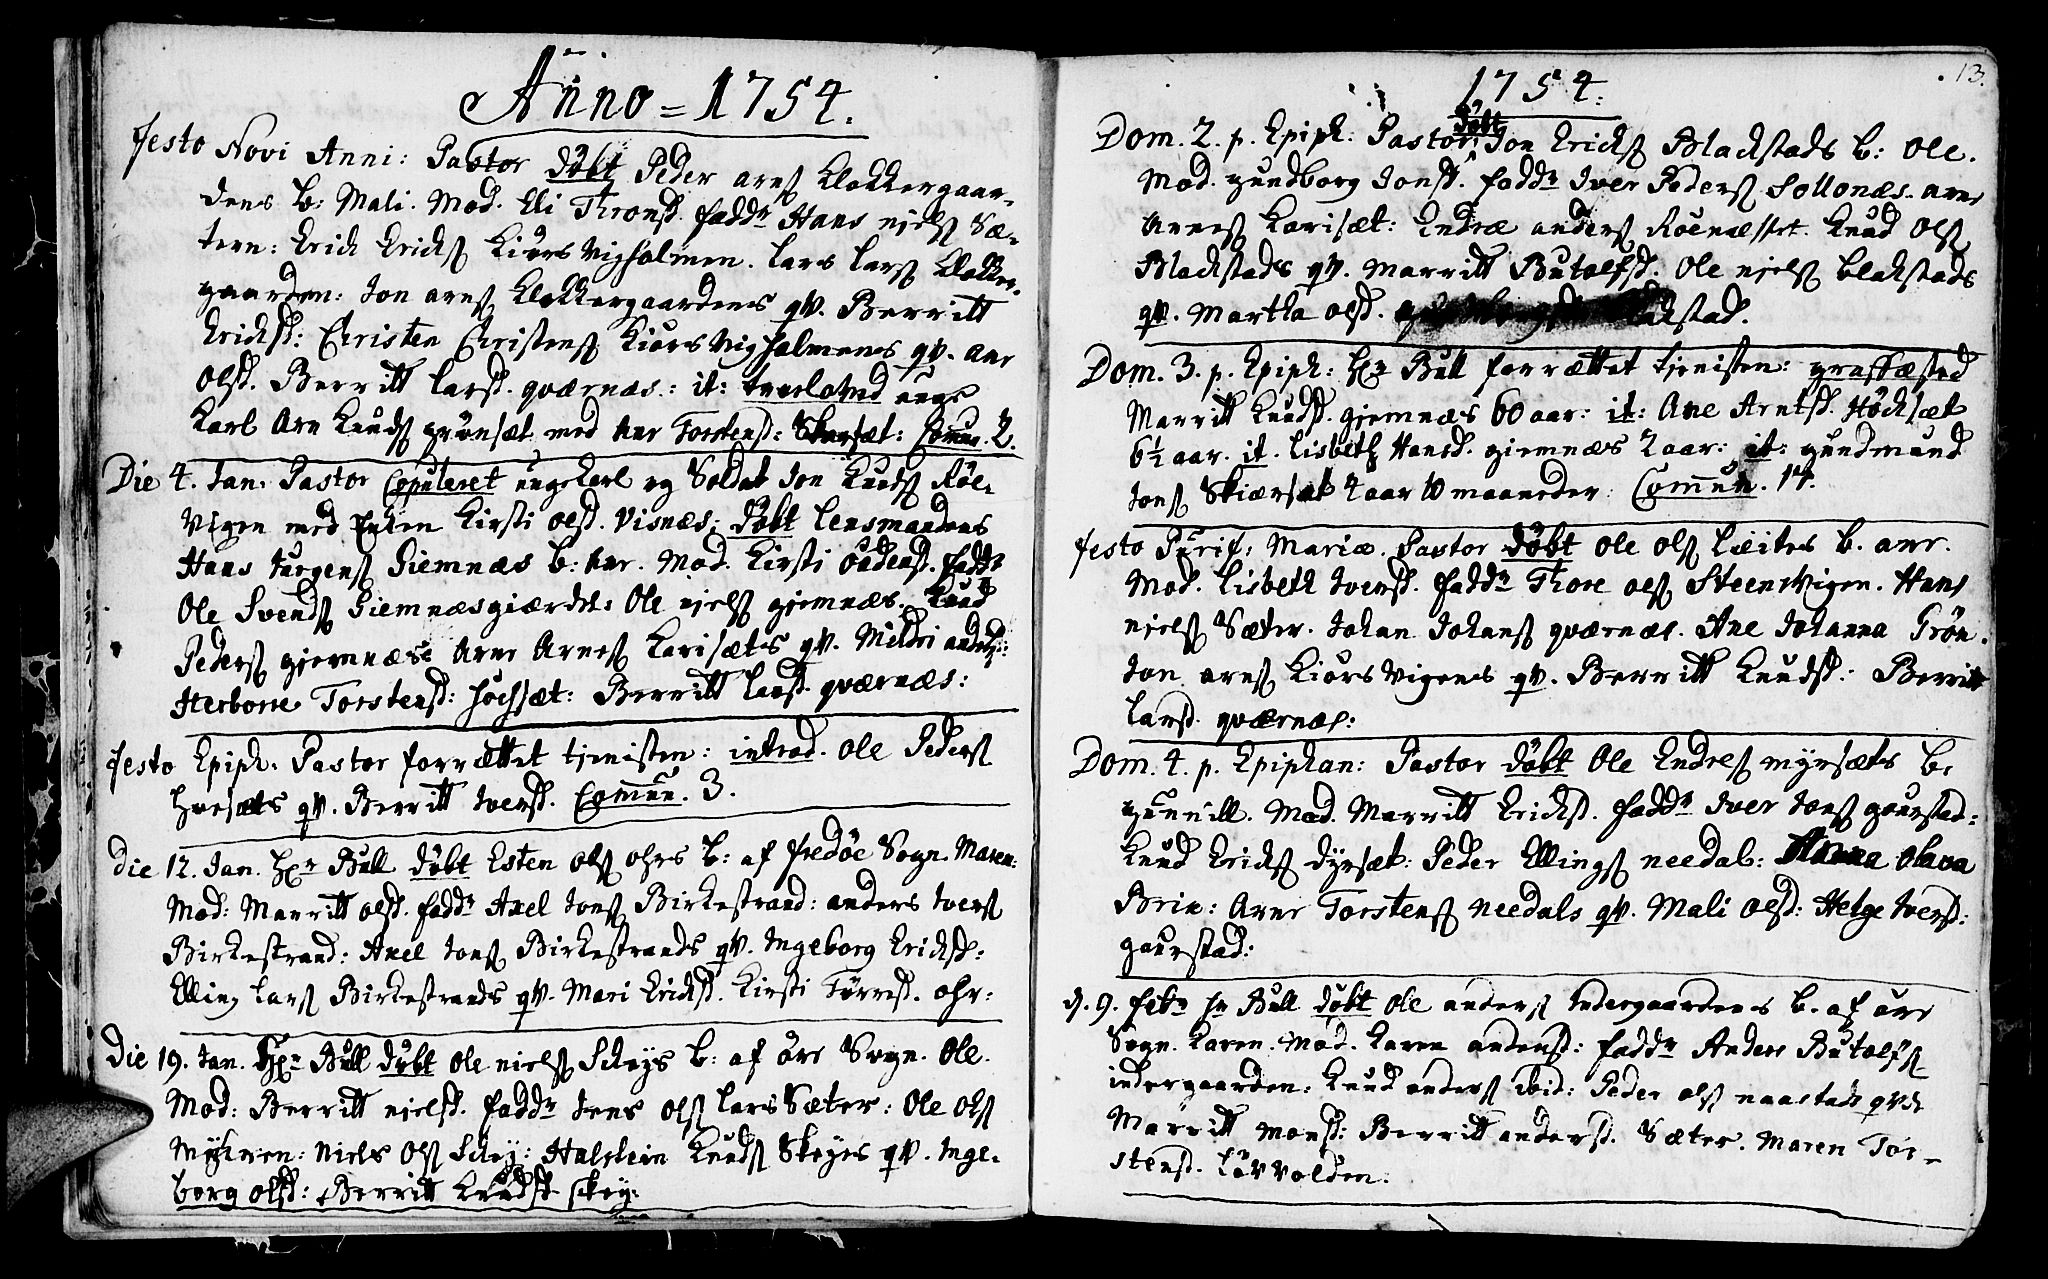 Anno = 1754.
Festo Novi Anni: Pastor döbt Peder arns Klokkergaar-
dens b: Mali. Mod. Eli Thronsd. Faddr Hans niels Sæ-
tern: Erich Erichs Kiørsvigholmen. Lars Lars Klokker-
gaarden: Jon arns Klokkergaardens qv. Berritt
Erichsd: Christen Christens Kiørsvigholmens qv. anr
Olsd. Berritt Larsd. qværnæs: it: trorloved unge
Karl Arn Knuds grønsæt med anr Torstensd: Skarsæt: Comun. 2.
Die 4. Jan. Pastor Copuleret ungekarl og Soldat Jon Knuds Røe-
vigen med Enken Kirsti olsd. Visnæs: döbt Lensmandens
Hans Jurgens Giemnæs b: anr. Mod. Kirsti oudensd. faddr
Ole Svends Giemnæsgiærdet: Ole niels giemnæs. Knud
Peders giemnæs: Arne Arnes Karisæts qv. Mildri anders:
Herborre Torstensd: Høchsæt: Berritt Larsd. qværnæs:
Festo Epiph. Pastor forrættet tjenisten: introd. Ole Peders
qv. Berritt Iversd. Comun. 3.
Die 12. Jan. Hr Bull döbt Esten ols ohrs b: af fredøe Sogn. Maren:
Mod: Marritt olsd. faddr Axel Jons Birkestrand: anders Ivers
Birkestrand: Axel Jons Birkestrands qv. Ingeborg Erichsd:
Elling Lars Birkestrands qv. Mari Erichsd. Kirsti Torresd. ohr:
Die 19. Jan. Hr Bull döbt Ole niels Skeys b: af öre Sogn. Ole.
Mod: Berritt nielsd. faddr Jens ols Lars Sæter: Ole ols
Myhren: Niels Ols Skey: Halstein Knuds Skeyes qv. Inge-
borg olsd: Berritt Knudsd. Skey:
13.
1754:
döbt
Dom. 2. p. Epiph: Pastor Jon Erichs Blackstads b: Ole.
Mod. gundborg Jonsd. faddr Iver Peders Sollonæs. arne
Arnes Karisæt: Endræ anders Røenæsset. Knud Ols
Blackstads qv. Marritt Butolfsd. Ole niels blakstads
qv. Martha olsd.
Dom. 3. p. Epiph: Hr Bull forrættet tjenisten: graffæsted
Marritt Knudsd. giemnæs 60 aar: it: Ane Arntsd. Höchsæt
6½ aar. it. Lisbeth Hansd. giemnæs 2 aar: it: gundmund
Jons Skiærsæt 4 aar 10 maaneder: Comun. 14.
Festo Purif: Mariæ. Pastor döbt Ole ols Leites b. anr.
Mod. Lisbeth Iversd. faddr Thore ols Steensvigen. Hans
niels Sæter. Johan Johans qværnæs. Ane Johanna Grön.
Jon arns Kiørsvigens qv. Berritt Knudsd: Berritt
Larsd. qværnæs:
Dom. 4. p. Epiphan: Pastor döbt Ole Endres myrsæts b.
gunnill. Mod. Marritt Erichsd. faddr Iver Jons gaurstad:
Knud Erichs dyrsæt: Peder Ellings needal: Anna Olava
Brin: Arne Torstens needals qv. Mali olsd: Helge Iversd:
gaurstad:
d. 9. Febr Hr Bull döbt Ole anders Indergaardens b. af öre
Sogn. Karen. Mod. Karen andersd: faddr Anders Butolfs
indergaarden: Knud anders ibid: Peder ols naastads qv:
Marritt monsd: Berritt andersd. Sæter. Maren Tor-
stensd. Lövvolden: